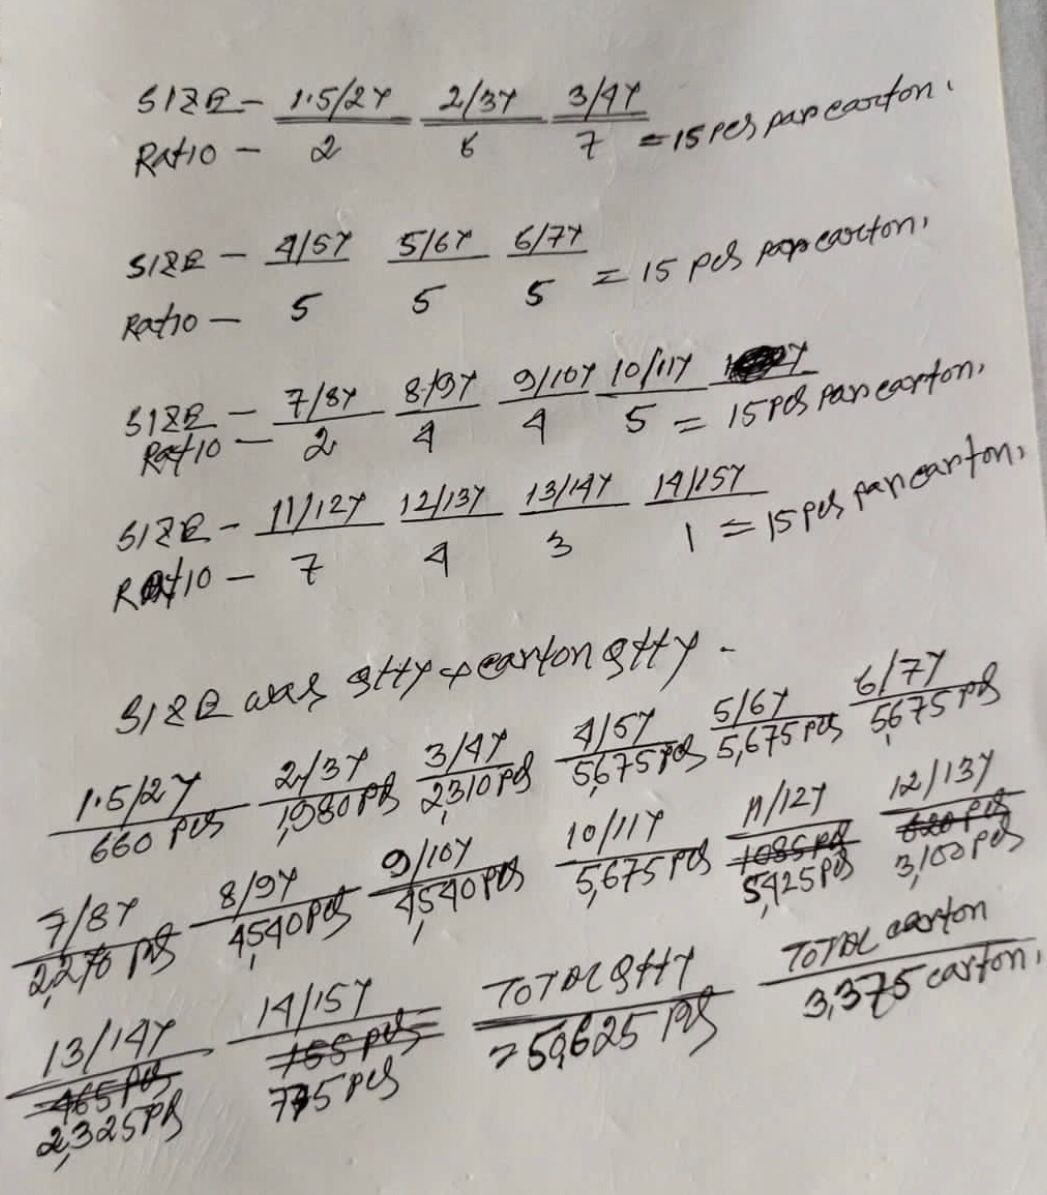 SIZE - 1.5/2Y 2/3Y 3/4Y
Ratio - 2 6 7 = 15 pcs par carton.
SIZE - 4/5Y 5/6Y 6/7Y
Ratio - 5 5 5 = 15 pcs par carton.
SIZE - 7/8Y 8/9Y 9/10Y 10/11Y
Ratio - 2 4 4 5 = 15 pcs par carton.
SIZE - 11/12Y 12/13Y 13/14Y 14/15Y
Ratio - 7 4 3 1 = 15 pcs par carton.
SIZE was qtty & carton qtty -
1.5/2Y 2/3Y 3/4Y 4/5Y 5/6Y 6/7Y
660 pcs 1,980 pcs 2,310 pcs 5,675 pcs 5,675 pcs 5,675 pcs
7/8Y 8/9Y 9/10Y 10/11Y 11/12Y 12/13Y
2,270 pcs 4,540 pcs 4,540 pcs 5,675 pcs 1085 pcs 620 pcs
5,425 pcs 3,100 pcs
13/14Y 14/15Y TOTAL qtty TOTAL carton
465 pcs 155 pcs = 50,625 pcs 3,375 carton.
2,325 pcs 775 pcs